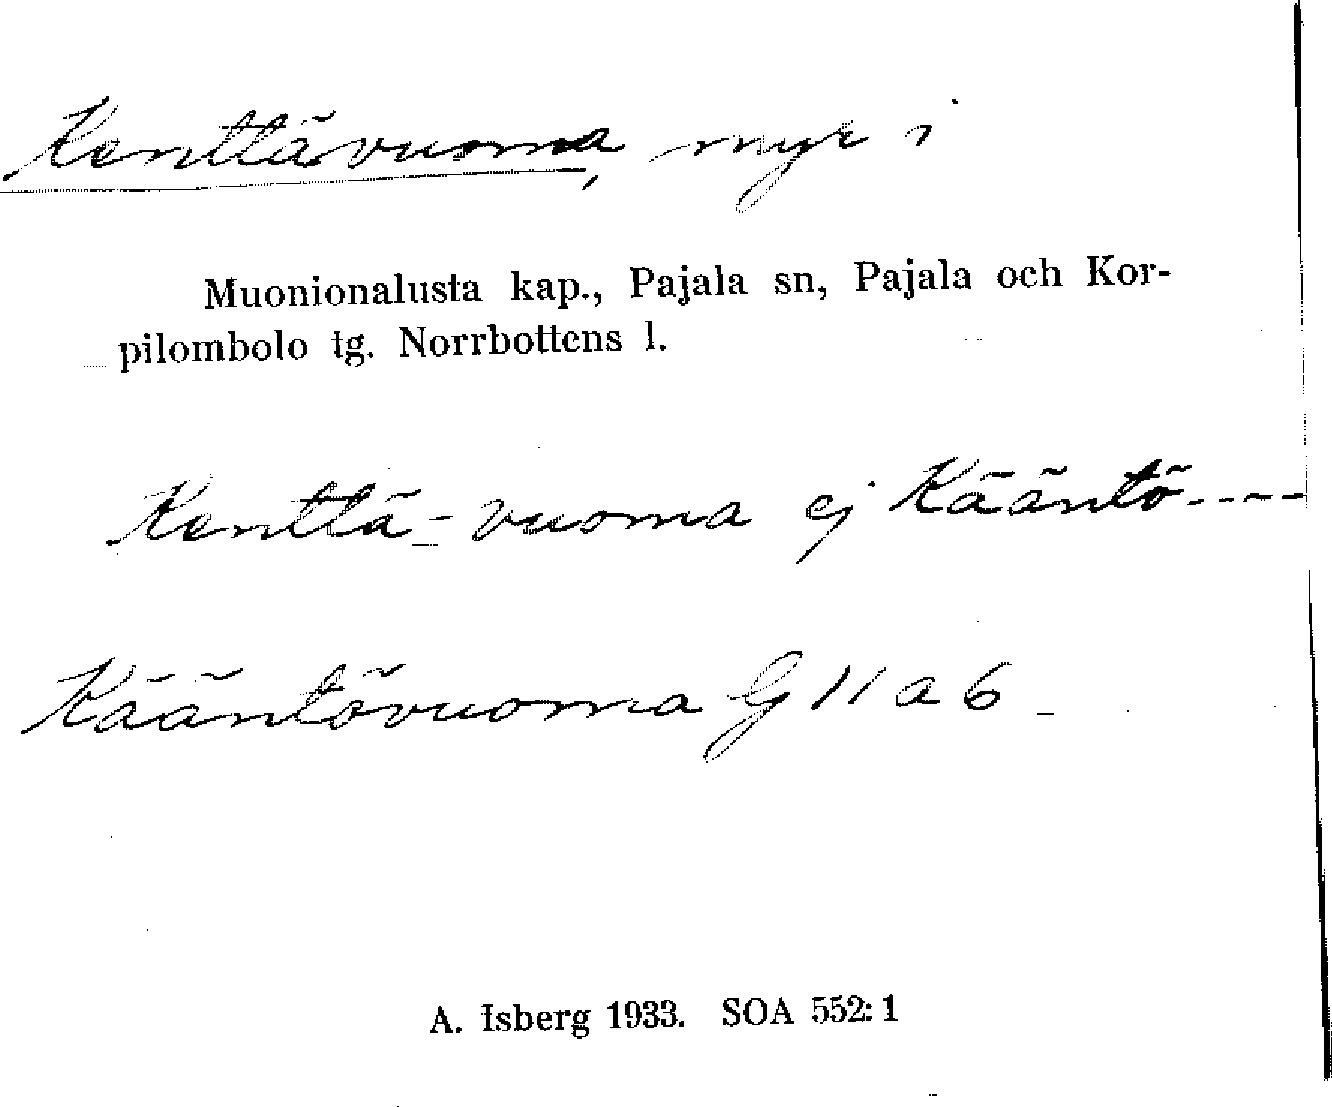 Kenttävuoma, myr i
Muonionalusta kap., Pajala sn, Pajala och Kor-
pilombolo tg. Norrbottens l.
Kenttä-vuoma ej Kääntö----
Kääntövuoma G 11 a 6
A. Isberg 1933. SOA 552:1